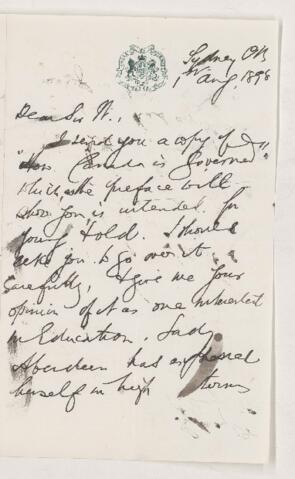 Sydney CB
1st Aug. 1898
Dear Sir W.,
I send you a copy of
"How Canada is Governed"
which, as the preface will
show you, is intended for
young & old. I should
ask you to go over it
carefully, & give me your
opinion of it as one interested
in Education. Lady
Aberdeen has expressed
herself in high terms